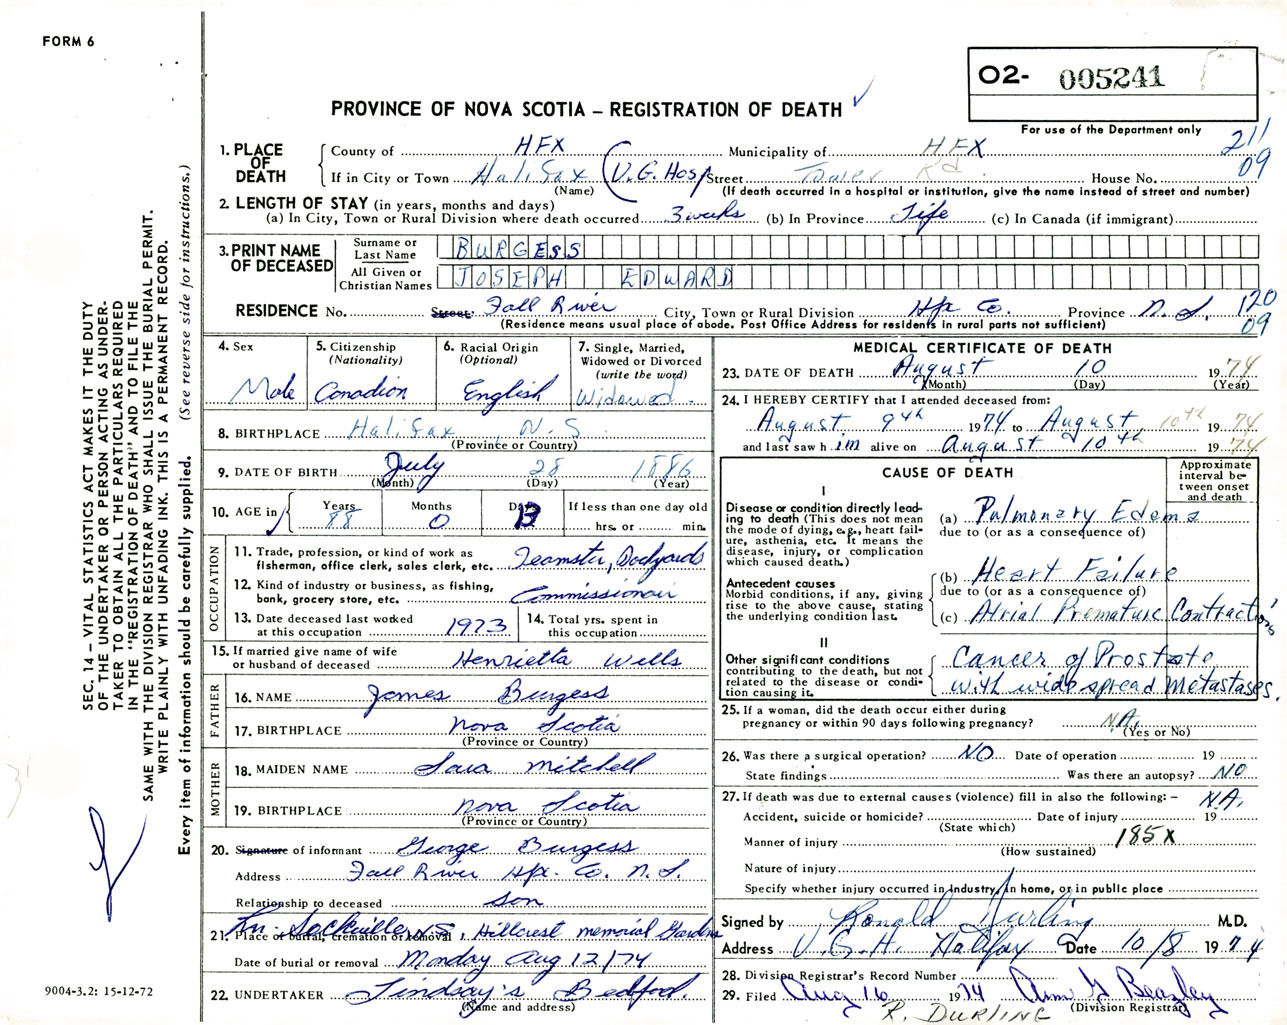 FORM 6
O2- 005241
PROVINCE OF NOVA SCOTIA – REGISTRATION OF DEATH ✓
For use of the Department only
211
09
1. PLACE OF DEATH
County of HFX Municipality of HFX
If in City or Town Halifax (V.G. Hosp Street Tower Rd House No.
(Name) (If death occurred in a hospital or institution, give the name instead of street and number)
2. LENGTH OF STAY (in years, months and days)
(a) In City, Town or Rural Division where death occurred 3 weeks (b) In Province Life (c) In Canada (if immigrant)
3. PRINT NAME OF DECEASED
Surname or Last Name BURGESS
All Given or Christian Names JOSEPH EDWARD
RESIDENCE No. Street. Fall River City, Town or Rural Division Hfx Co. Province N. S.
120
09
(Residence means usual place of abode. Post Office Address for residents in rural parts not sufficient)
4. Sex
Male
5. Citizenship
(Nationality)
Canadian
6. Racial Origin
(Optional)
English
7. Single, Married,
Widowed or Divorced
(write the word)
Widowed
8. BIRTHPLACE Halifax N. S.
(Province or Country)
9. DATE OF BIRTH July 28 1886
(Month) (Day) (Year)
10. AGE in
Years 88
Months 0
Days 13
If less than one day old
hrs. or min.
OCCUPATION
11. Trade, profession, or kind of work as
fisherman, office clerk, sales clerk, etc. Teamster, Dockyards
12. Kind of industry or business, as fishing,
bank, grocery store, etc. Commissionair
13. Date deceased last worked
at this occupation 1973
14. Total yrs. spent in
this occupation
15. If married give name of wife
or husband of deceased Henrietta Wells
FATHER
16. NAME James Burgess
17. BIRTHPLACE Nova Scotia
(Province or Country)
MOTHER
18. MAIDEN NAME Sara Mitchell
19. BIRTHPLACE Nova Scotia
(Province or Country)
20. Signature of informant George Burgess
Address Fall River Hfx. Co. N. S.
Relationship to deceased son
Sackville N.S.
21. Place of burial, cremation or removal Hillcrest memorial Gardens
Date of burial or removal Monday Aug 12/74
22. UNDERTAKER Lindsay's Bedford.
(Name and address)
MEDICAL CERTIFICATE OF DEATH
23. DATE OF DEATH August 10 1974
(Month) (Day) (Year)
24. I HEREBY CERTIFY that I attended deceased from:
August 9th 1974 to August 10th 1974
and last saw him alive on August 10th 1974
CAUSE OF DEATH
Approximate interval between onset and death
I
Disease or condition directly leading to death (This does not mean the mode of dying, e.g., heart failure, asthenia, etc. It means the disease, injury, or complication which caused death.)
(a) Pulmonary Edema
due to (or as a consequence of)
Antecedent causes
Morbid conditions, if any, giving rise to the above cause, stating the underlying condition last.
(b) Heart Failure
due to (or as a consequence of)
(c) Atrial Premature Contractions
II
Other significant conditions contributing to the death, but not related to the disease or condition causing it.
Cancer of Prostate
with widespread metastases.
25. If a woman, did the death occur either during
pregnancy or within 90 days following pregnancy? N.A.
(Yes or No)
26. Was there a surgical operation? NO Date of operation 19
State findings Was there an autopsy? NO
27. If death was due to external causes (violence) fill in also the following: – N.A.
Accident, suicide or homicide? Date of injury 19
(State which)
Manner of injury 185X
(How sustained)
Nature of injury
Specify whether injury occurred in industry, in home, or in public place
Signed by Ronald Durling M.D.
Address V.G.H. Halifax Date 10/8 1974
28. Division Registrar's Record Number
29. Filed Aug 16 1974 Ann G Beazley
(Division Registrar)
R. DURLING
SEC. 14 – VITAL STATISTICS ACT MAKES IT THE DUTY
OF THE UNDERTAKER OR PERSON ACTING AS UNDER-
TAKER TO OBTAIN ALL THE PARTICULARS REQUIRED
IN THE "REGISTRATION OF DEATH" AND TO FILE THE
SAME WITH THE DIVISION REGISTRAR WHO SHALL ISSUE THE BURIAL PERMIT.
WRITE PLAINLY WITH UNFADING INK. THIS IS A PERMANENT RECORD.
Every item of information should be carefully supplied. (See reverse side for instructions.)
9004-3.2: 15-12-72